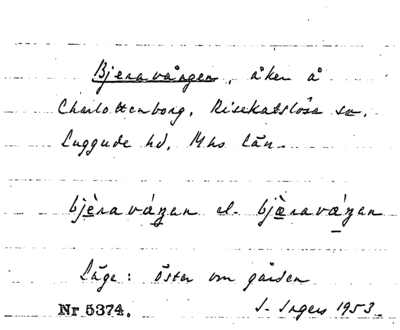 Bjeravången, åker å
Charlottenborg, Risekatslösa sn,
Luggude hd, Mhs län.
bjèraváŋen el. bjæ̀raváŋen
Läge: öster om gården
Nr 5374. I. Ingers 1953.